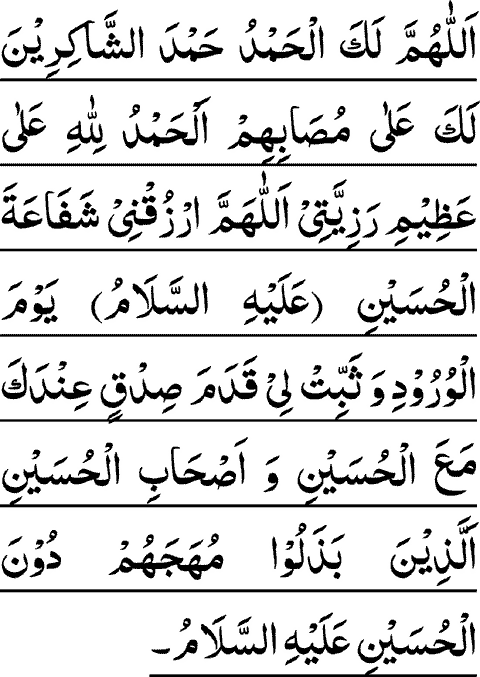 اَللّٰهُمَّ لَكَ الْحَمْدُ حَمْدَ الشَّاكِرِيْنَ
لَكَ عَلٰى مُصَابِهِمْ اَلْحَمْدُ لِلّٰهِ عَلٰى
عَظِيْمِ رَزِيَّتِيْ اَللّٰهَمَّ ارْزُقْنِيْ شَفَاعَةَ
الْحُسَيْنِ (عَلَيْهِ السَّلَامُ) يَوْمَ
الْوُرُوْدِ وَ ثَبِّتْ لِيْ قَدَمَ صِدْقٍ عِنْدَكَ
مَعَ الْحُسَيْنِ وَ اَصْحَابِ الْحُسَيْنِ
اَلَّذِيْنَ بَذَلُوْا مُهَجَهُمْ دُوْنَ
الْحُسَيْنِ عَلَيْهِ السَّلَامُ۔